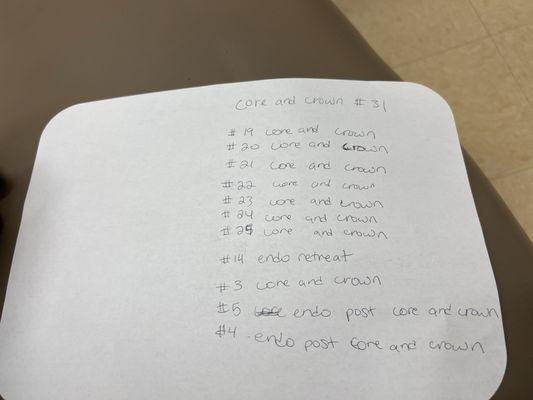 core and crown #31
#19 core and crown
#20 core and crown
#21 core and crown
#22 core and crown
#23 core and crown
#24 core and crown
#25 core and crown
#14 endo retreat
#3 core and crown
#5 endo post core and crown
#4 endo post core and crown